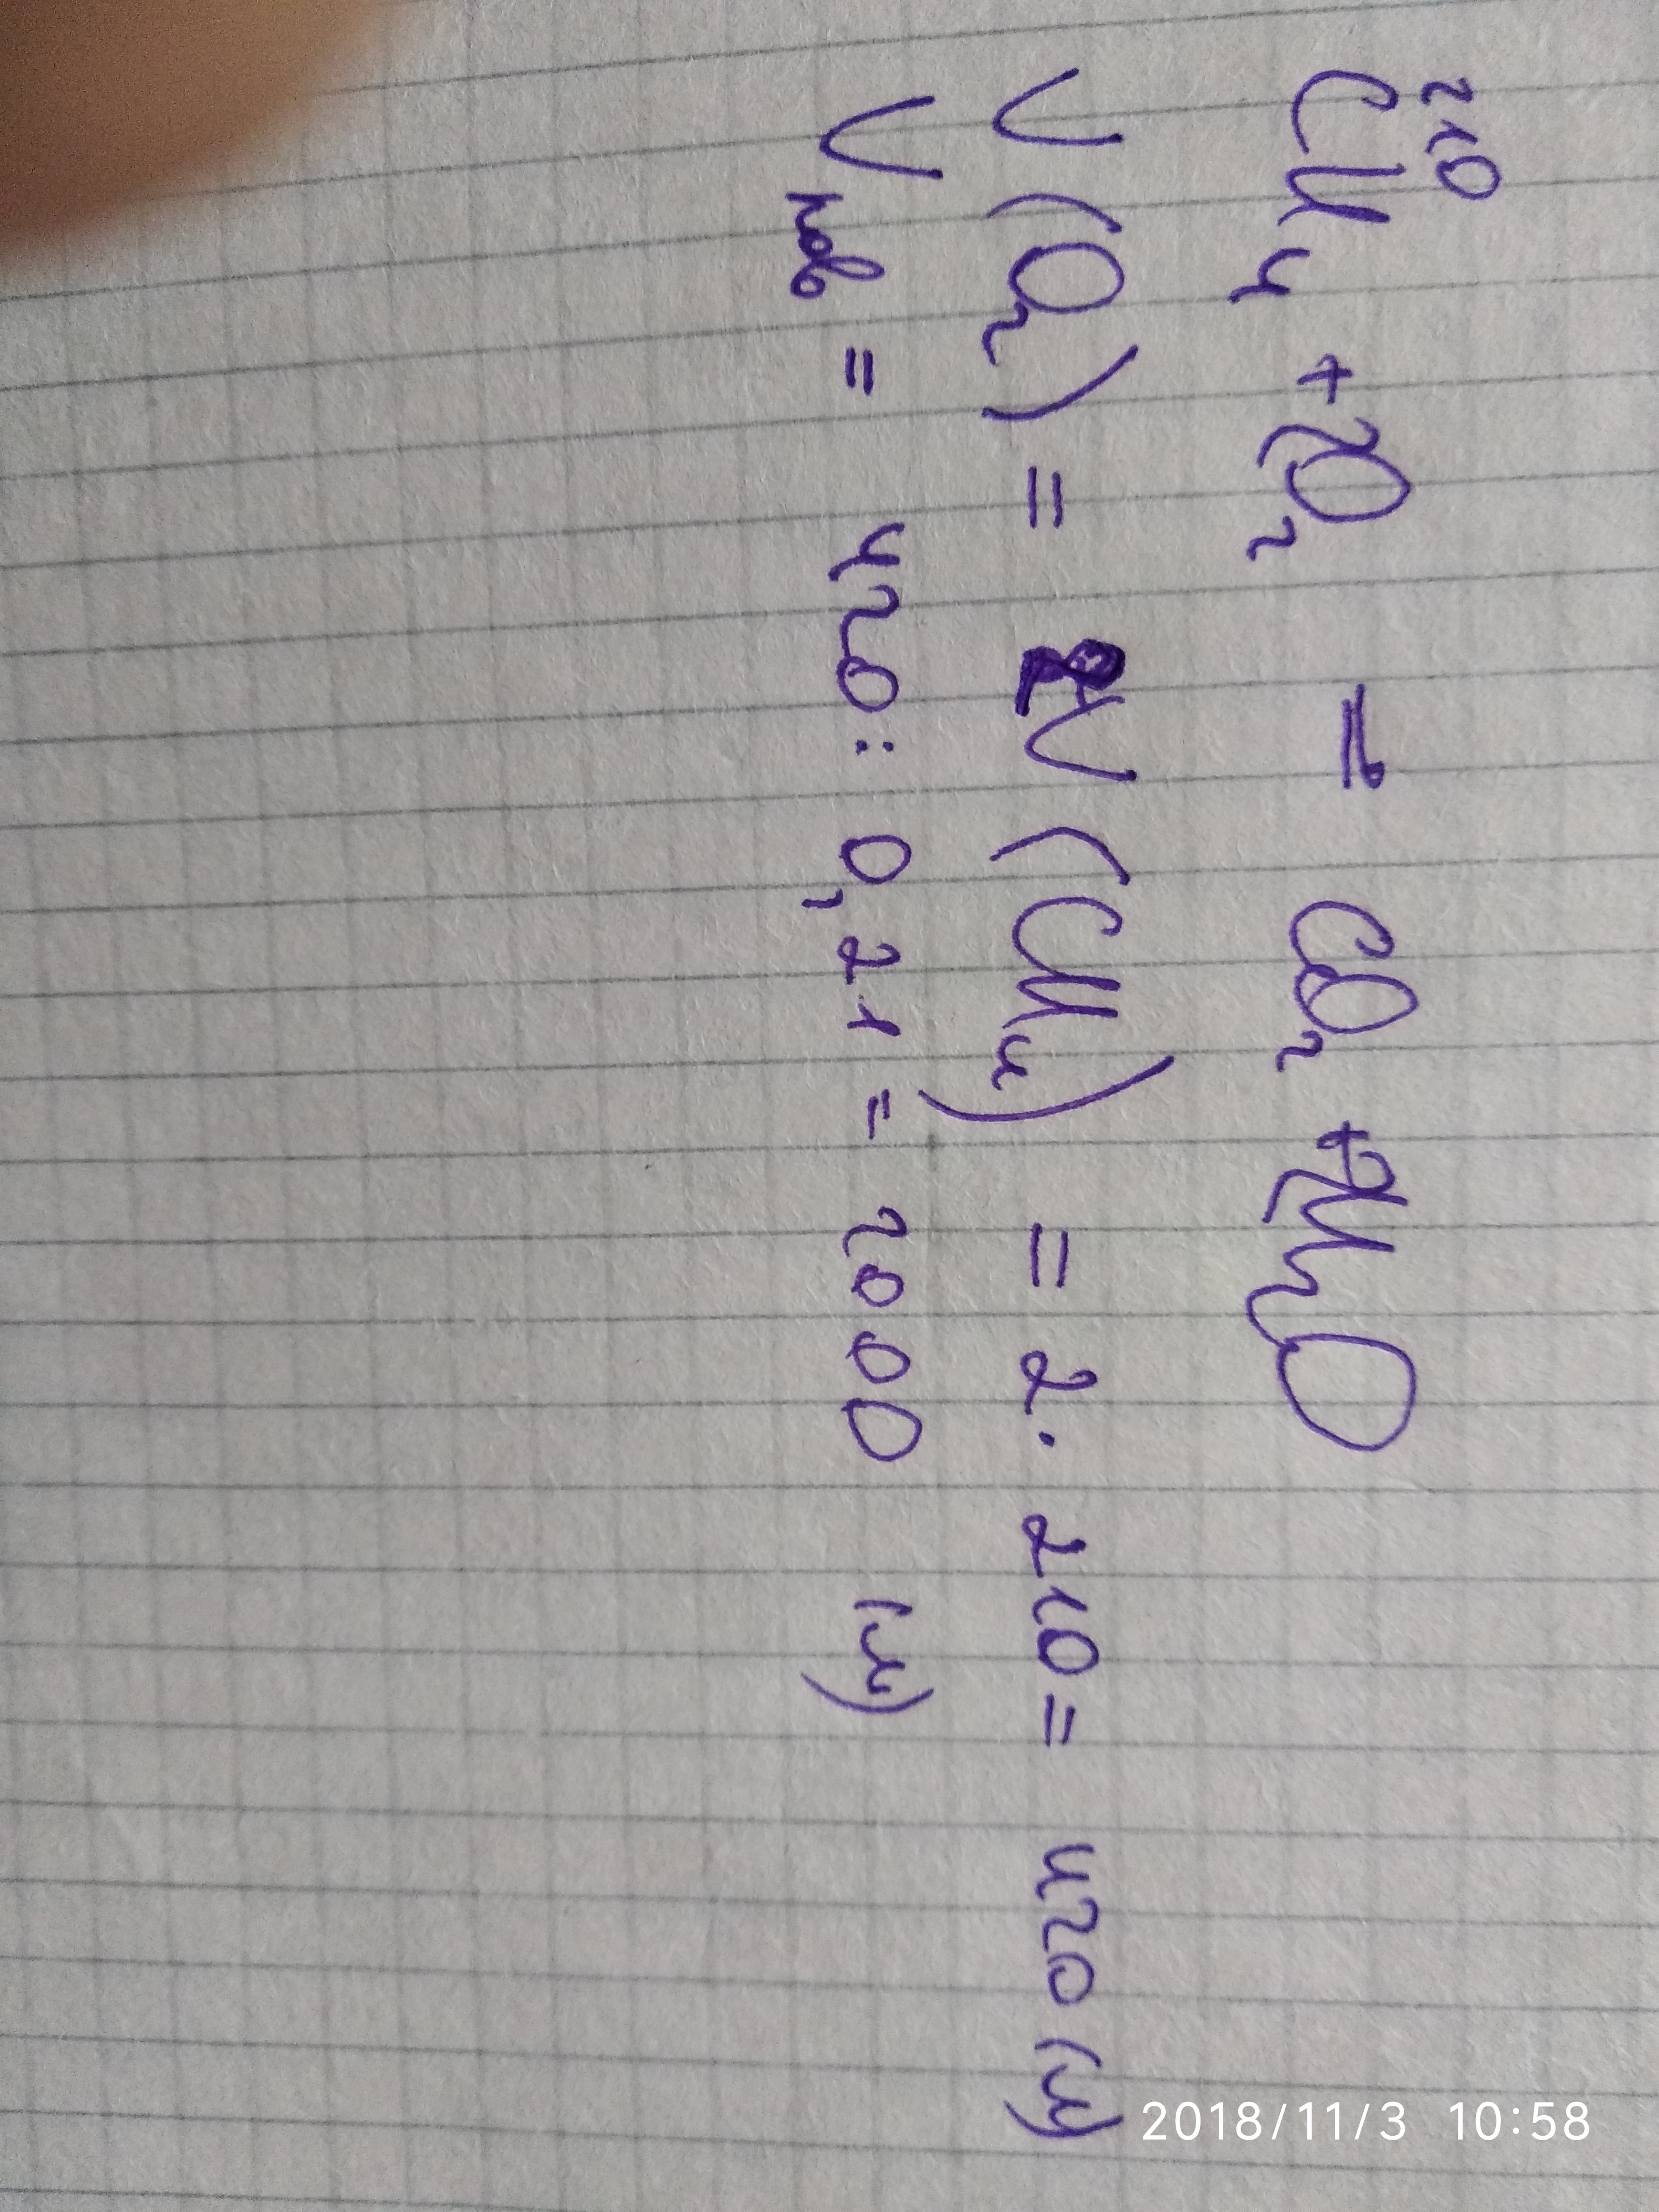 210
CH₄ + 2O₂ = CO₂ + 2H₂O
V(O₂) = 2V(CH₄) = 2 · 210 = 420 (л)
Vпов = 420 : 0,21 = 2000 (л)
2018/11/3 10:58